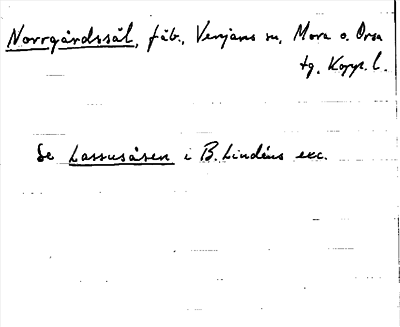 Norrgårdssål, fäb., Venjans sn, Mora o. Orsa
tg, Kopp. l.
Se Lassusåsen i B. Lindéns exc.